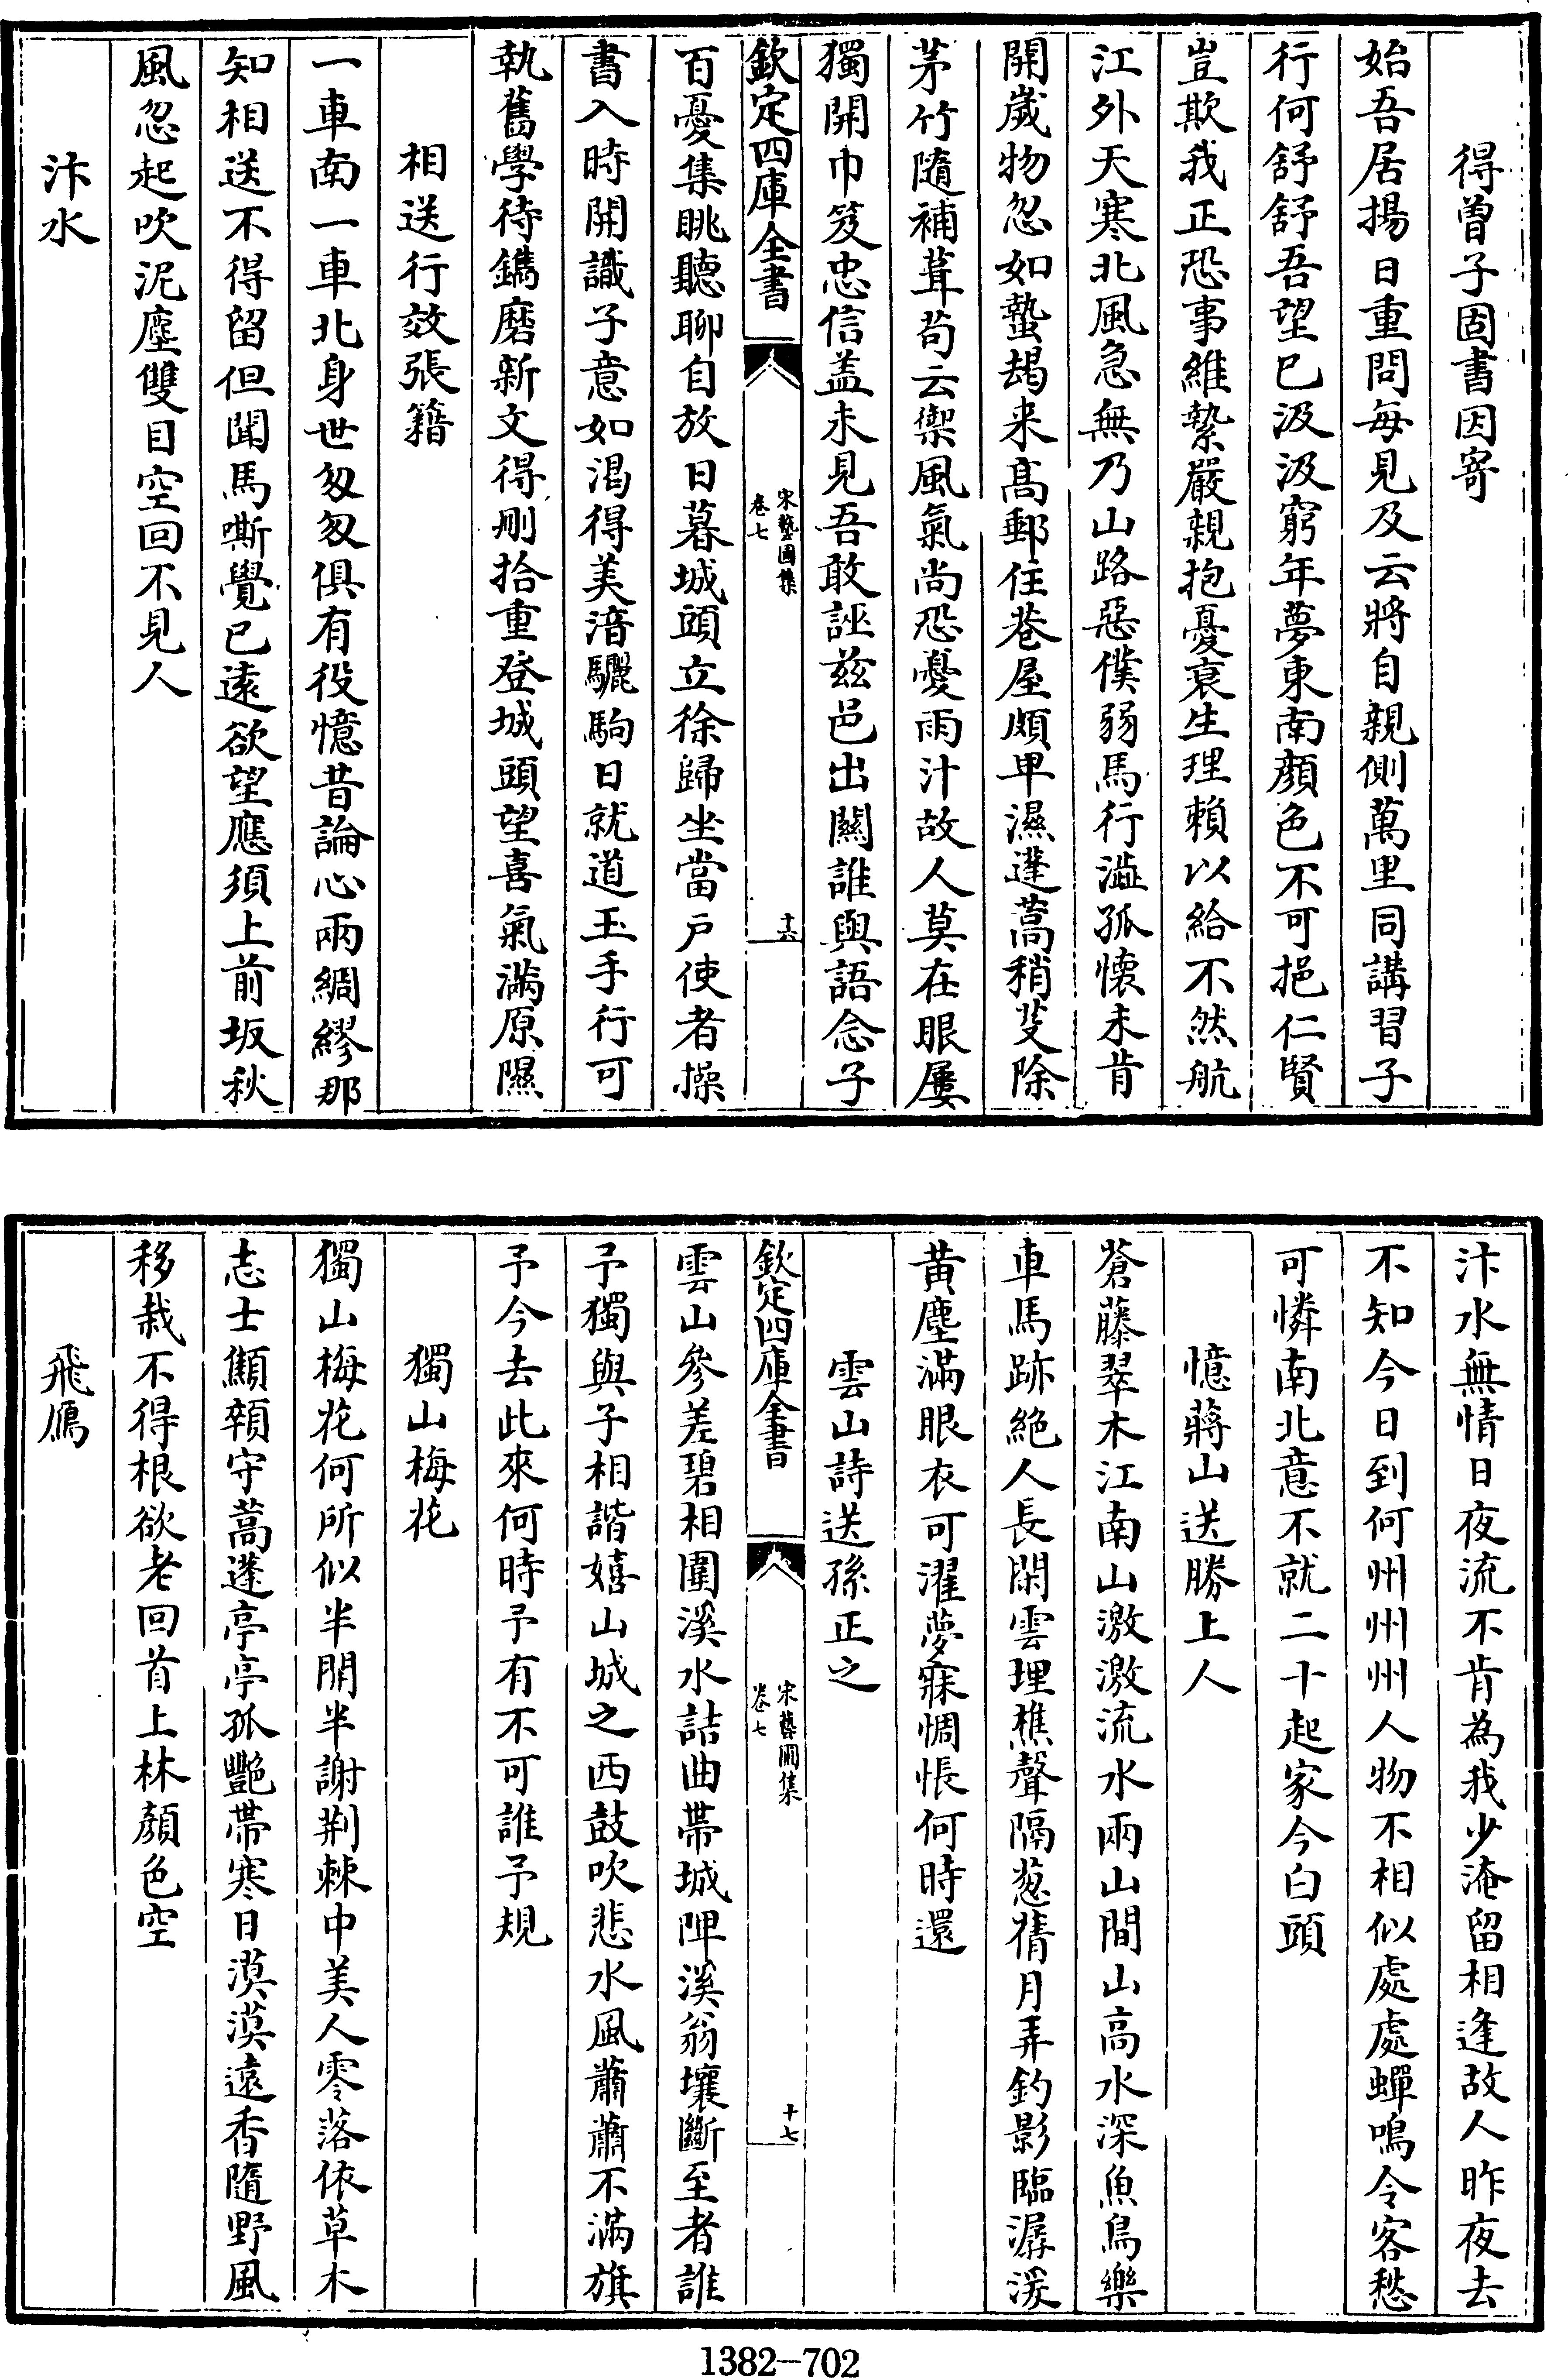 得曽子固書因寄
始吾居揚日重問每見及云將自親側萬里同講習子
行何舒舒吾望已汲汲窮年夢東南顔色不可挹仁賢
豈欺我正恐事維縶嚴親抱憂衰生理賴以給不然航
江外天寒北風急無乃山路惡僕弱馬行澁孤懐未肯
開歲物忽如蟄朅来髙郵住巷屋頗卑濕蓬蒿稍芟除
茅竹隨補葺茍云禦風氣尚恐憂雨汁故人莫在眼屢
獨開巾笈忠信盖未見吾敢誣兹邑出關誰與語念子
欽定四庫全書
宋藝圃集
卷七
十六
百憂集眺聽聊自放日暮城頭立徐歸坐當户使者操
書入時開識子意如渴得美湆驪駒日就道玉手行可
執舊學待鐫磨新文得刪拾重登城頭望喜氣滿原隰
相送行效張籍
一車南一車北身世匆匆俱有役憶昔論心兩綢繆那
知相送不得留但聞馬嘶覺已遠欲望應須上前坂秋
風忽起吹泥塵雙目空回不見人
汴水
汴水無情日夜流不肯為我少淹留相逢故人昨夜去
不知今日到何州州州人物不相似處處蟬鳴令客愁
可憐南北意不就二十起家今白頭
憶蔣山送勝上人
蒼藤翠木江南山激激流水兩山間山高水深魚鳥樂
車馬跡絶人長閑雲埋樵聲隔葱蒨月弄釣影臨潺湲
黄塵滿眼衣可濯夢寐惆悵何時還
雲山詩送孫正之
欽定四庫全書
宋藝圃集
卷七
十七
雲山參差碧相圍溪水詰曲帶城陴溪翁壤斷至者誰
予獨與子相諧嬉山城之西鼓吹悲水風蕭蕭不滿旗
予今去此來何時予有不可誰予規
獨山梅花
獨山梅花何所似半開半謝荆棘中美人零落依草木
志士顦顇守蒿蓬亭亭孤艷帶寒日漠漠遠香隨野風
移栽不得根欲老回首上林顔色空
飛鴈
1382-702